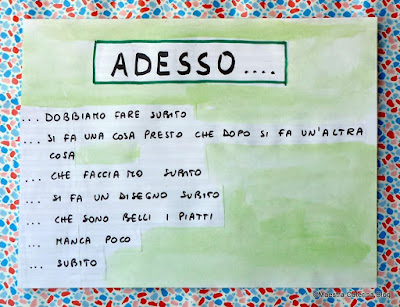 ADESSO....
... DOBBIAMO FARE SUBITO
... SI FA UNA COSA PRESTO CHE DOPO SI FA UN'ALTRA
COSA
... CHE FACCIAMO SUBITO
... SI FA UN DISEGNO SUBITO
... CHE SONO BELLI I PIATTI
... MANCA POCO
... SUBITO